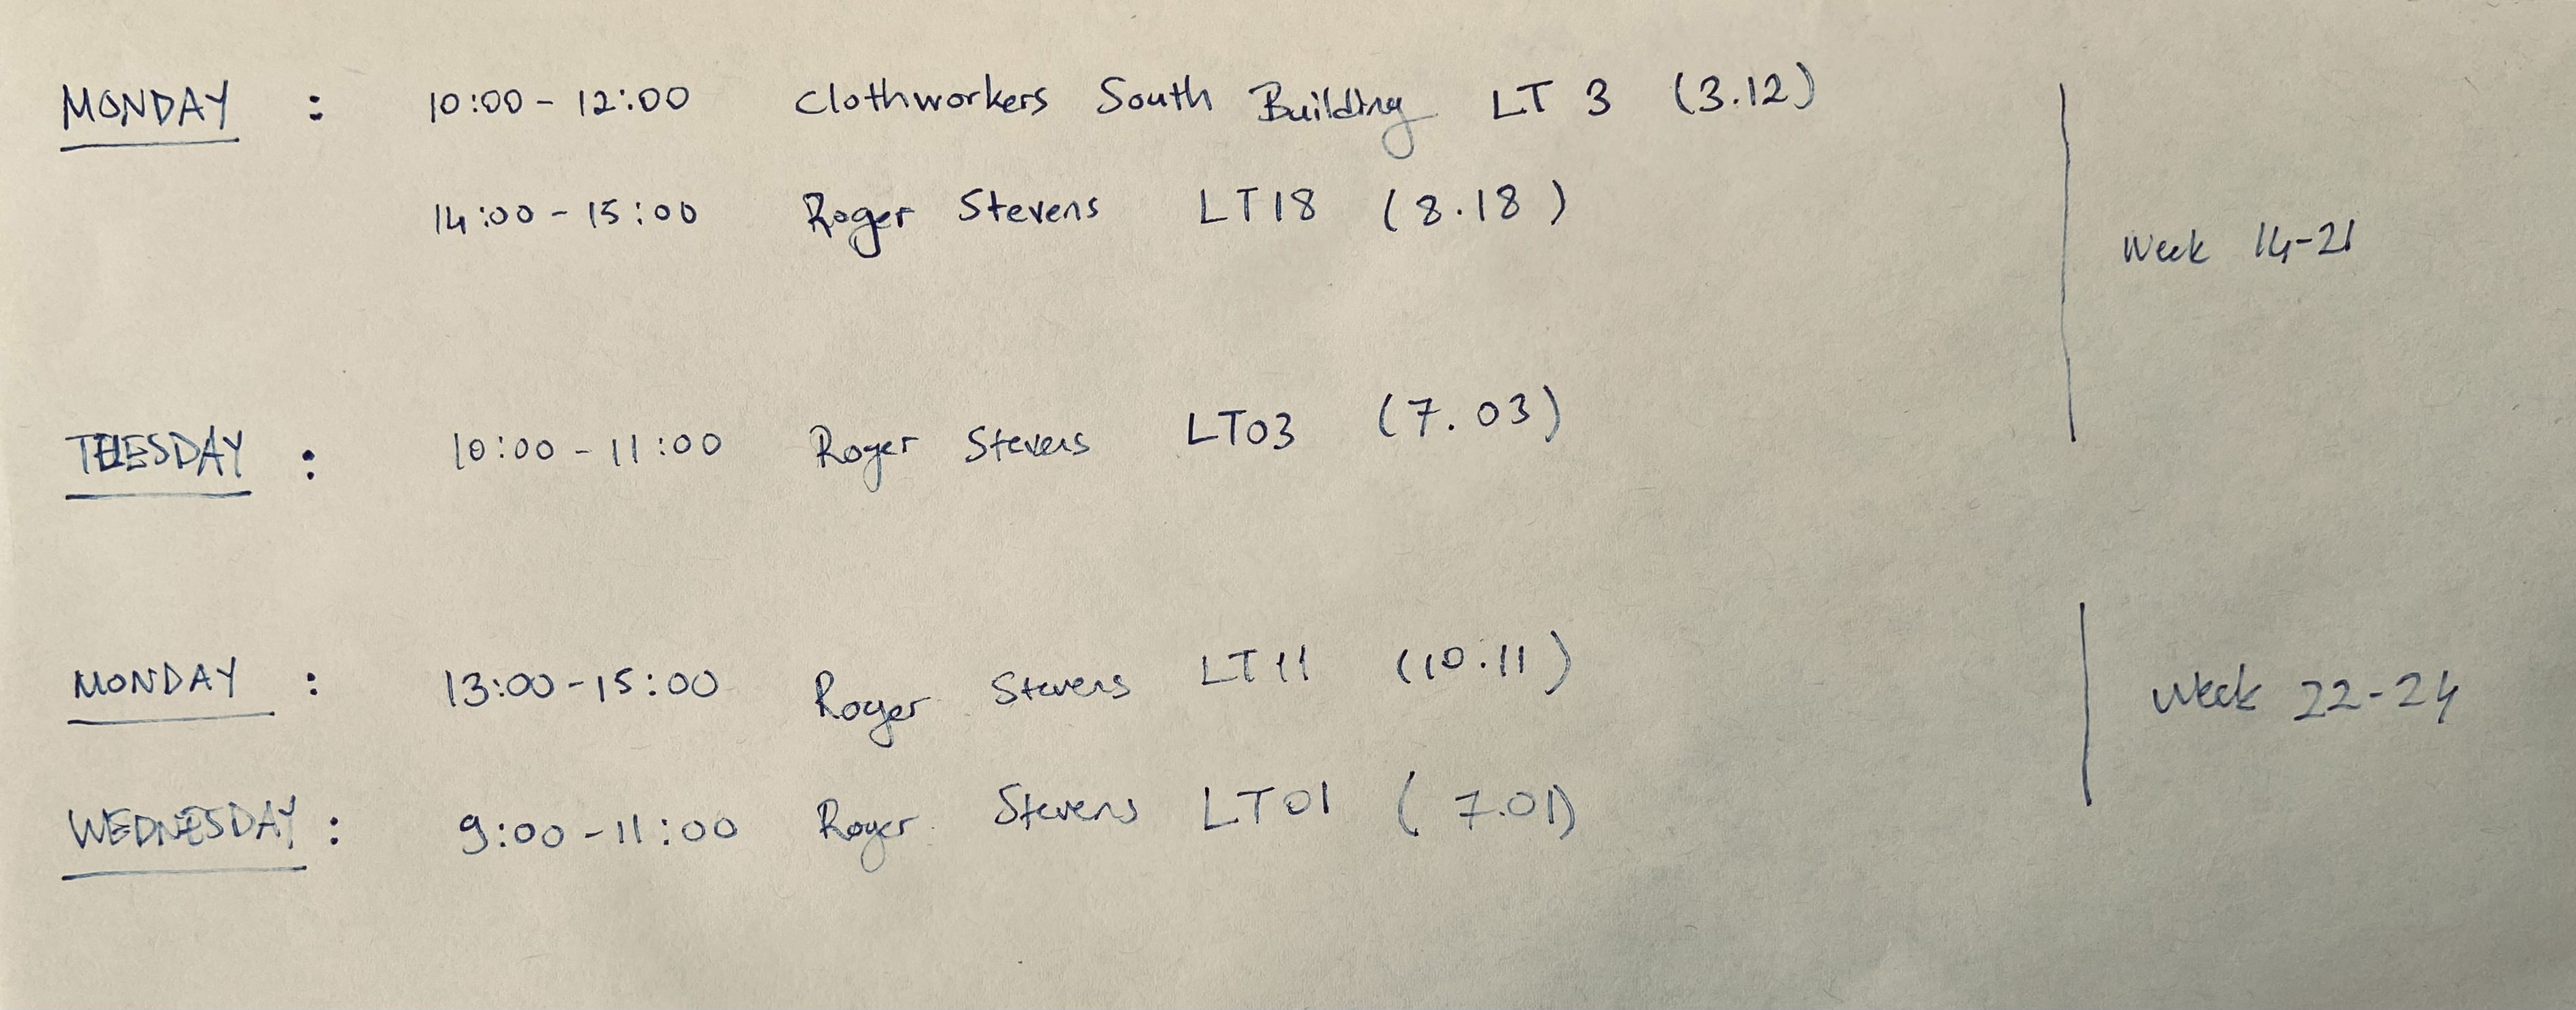 MONDAY : 10:00 - 12:00 Clothworkers South Building LT 3 (3.12)
14:00 - 15:00 Roger Stevens LT18 (8.18)
Week 14-21
TUESDAY : 10:00 - 11:00 Roger Stevens LT03 (7.03)
MONDAY : 13:00 - 15:00 Roger Stevens LT11 (10.11)
Week 22-24
WEDNESDAY : 9:00 - 11:00 Roger Stevens LT01 (7.01)